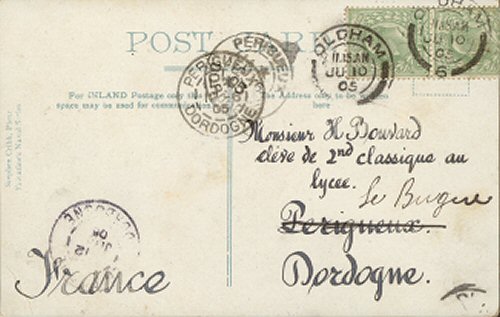 POST CARD
For INLAND Postage only this
space may be used for communication
The Address only to be
here
OLDHAM
11.15AM
JU 10
05
PERIGUEUX
DORDOGNE
Monsieur H Bouvard
élève de 2nd classique au
lycee.
Le Bugue
Perigueux.
Dordogne.
France
DORDOGNE
12